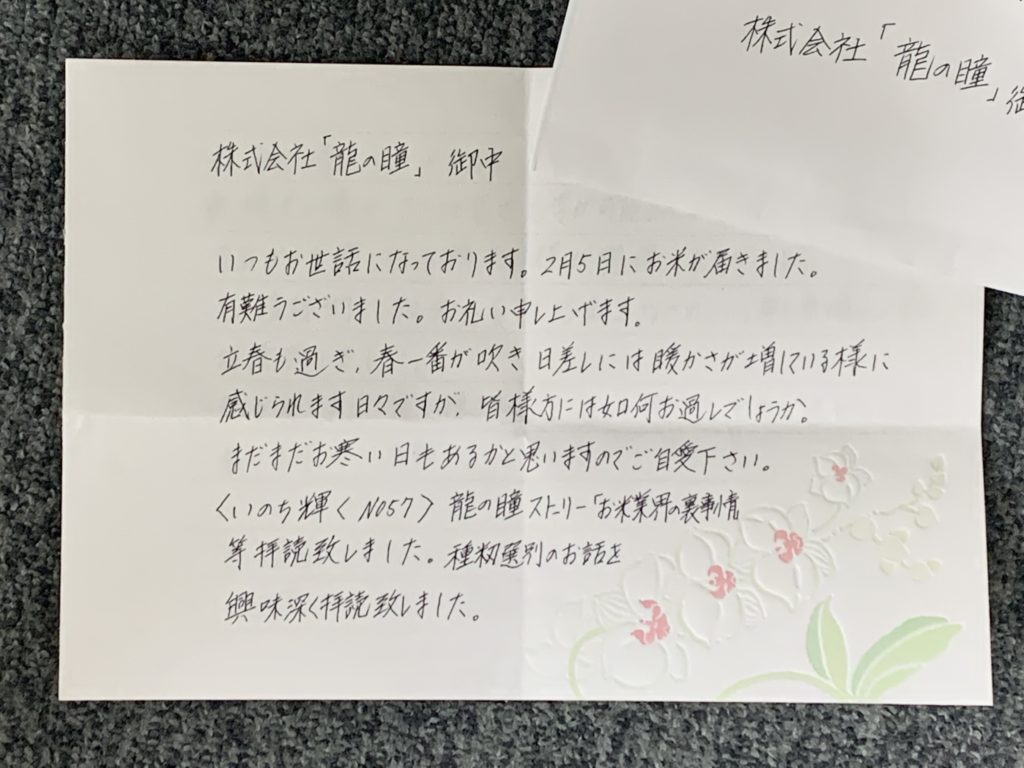 株式会社「龍の瞳」御
株式会社「龍の瞳」 御中
いつもお世話になっております。2月5日にお米が届きました。
有難うございました。お礼い申し上げます。
立春も過ぎ、春一番が吹き日差しには暖かさが増している様に
感じられます日々ですが、皆様方には如何お過しでしょうか。
まだまだお寒い日もあるかと思いますのでご自愛下さい。
〈いのち輝く NO57〉 龍の瞳ストーリー「お米業界の裏事情
等拝読致しました。種籾選別のお話を
興味深く拝読致しました。